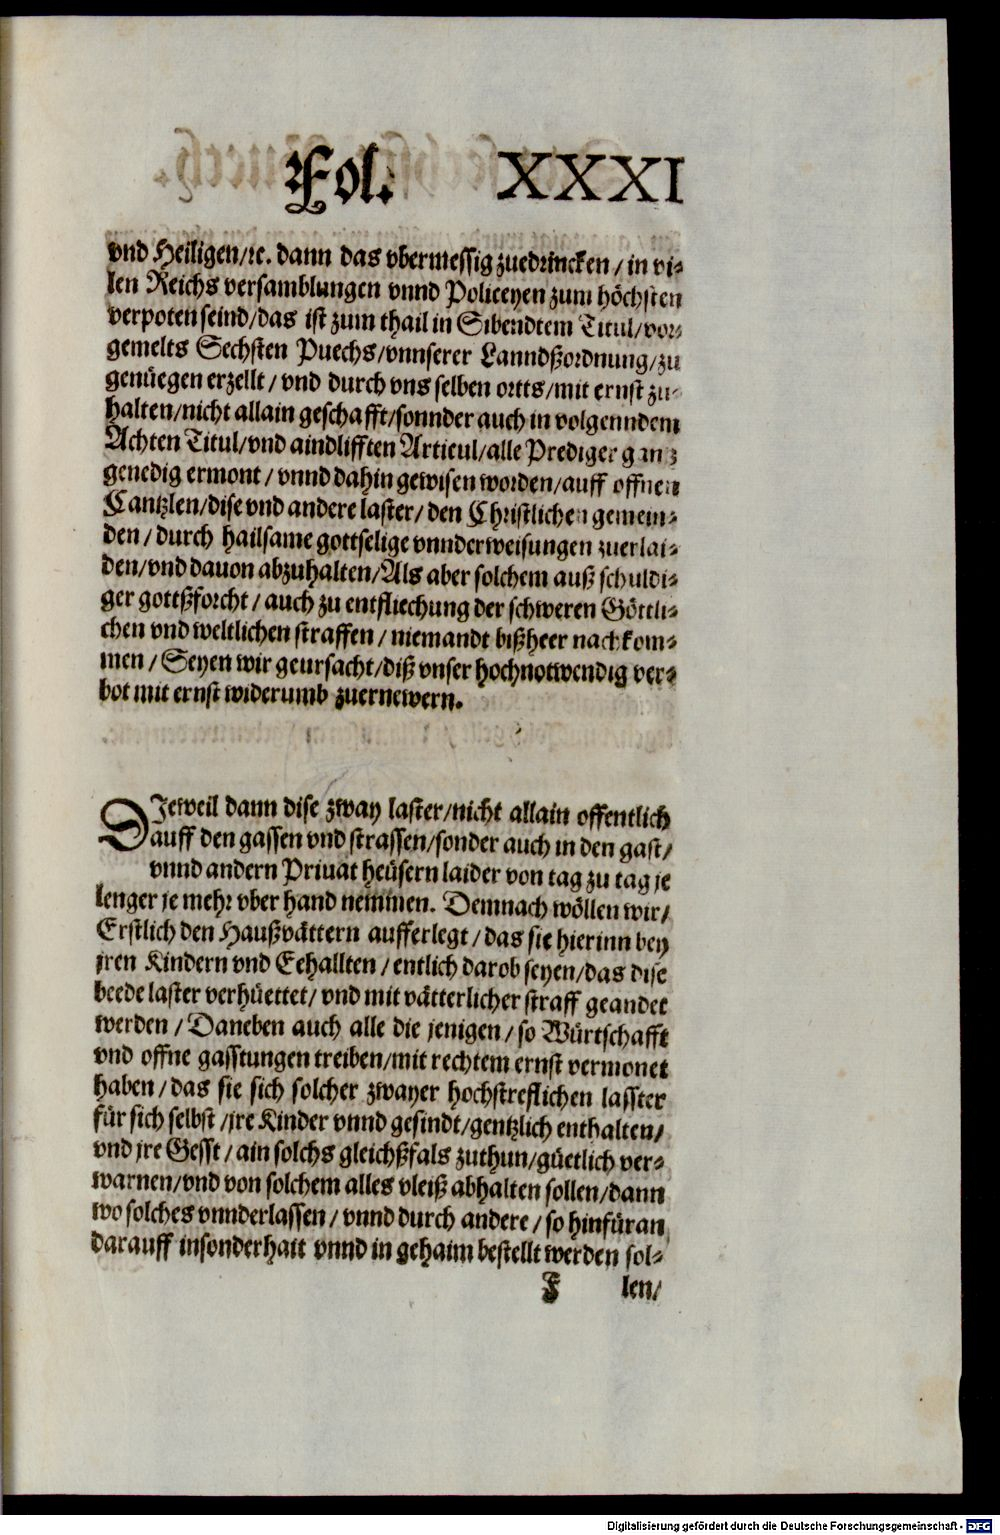 Fol. XXXI
vnd Heiligen/ꝛc. dann das vbermessig zuedrincken / in vi-
len Reichs versamblungen vnnd Policeyen zum höchsten
verpoten seind/das ist zum thail in Sibendtem Titul/vor-
gemelts Sechsten Puechs/vnnserer Lanndßordnung/zu
genüegen erzellt / vnd durch vns selben ortts/mit ernst zu-
halten/nicht allain geschafft/sonnder auch in volgenndem
Achten Titul/vnd aindlifften Articul/alle Prediger ganz
genedig ermont / vnnd dahin gewisen worden/auff offnen
Cantzlen/dise vnd andere laster/ den Christlichen gemein-
den / durch hailsame gottselige vnnderweisungen zuerlai-
den/vnd dauon abzuhalten/Als aber solchem auß schuldi-
ger gottßforcht / auch zu entfliechung der schweren Göttli-
chen vnd weltlichen straffen / niemandt bißheer nachkom-
men / Seyen wir geursacht/diß vnser hochnotwendig ver-
bot mit ernst widerumb zuernewern.
DJeweil dann dise zway laster/nicht allain offentlich
auff den gassen vnd strassen/sonder auch in den gast/
vnnd andern Priuat heüsern laider von tag zu tag je
lenger je mehr vber hand nemmen. Demnach wöllen wir/
Erstlich den Haußvättern aufferlegt / das sie hierinn bey
jren Kindern vnd Eehallten / entlich darob seyen/das dise
beede laster verhüettet/ vnd mit vätterlicher straff geandet
werden / Daneben auch alle die jenigen / so Würtschafft
vnd offne gasstungen treiben/mit rechtem ernst vermonet
haben / das sie sich solcher zwayer hochstreflichen lasster
für sich selbst /jre Kinder vnnd gesindt/gentzlich enthalten/
vnd jre Gesst / ain solchs gleichßfals zuthun/güetlich ver-
warnen/vnd von solchem alles vleiß abhalten sollen/dann
wo solches vnnderlassen / vnnd durch andere / so hinfüran
darauff insonderhait vnnd in gehaim bestellt werden sol-
F len/
Digitalisierung gefördert durch die Deutsche Forschungsgemeinschaft - DFG